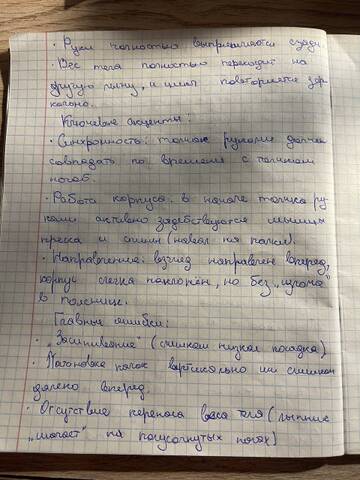 · Руки полностью выпрямляются сзади.
· Вес тела полностью переходит на
другую лыжу, и цикл повторяется зер
кально.
Ключевые акценты:
· Синхронность: толчок руками должен
совпадать по времени с толчком
ногой.
· Работа корпуса: в начале толчка ру
ками активно задействуются мышцы
пресса и спины (навал на палки).
· Направление: взгляд направлен вперед,
корпус слегка наклонён, но без „излома"
в пояснице.
Главные ошибки:
· „Засиживание" (слишком низкая посадка)
· Постановка палок вертикально или слишком
далеко вперед
· Отсутствие переноса веса тела (лыжник
„шагает" на полусогнутых ногах)